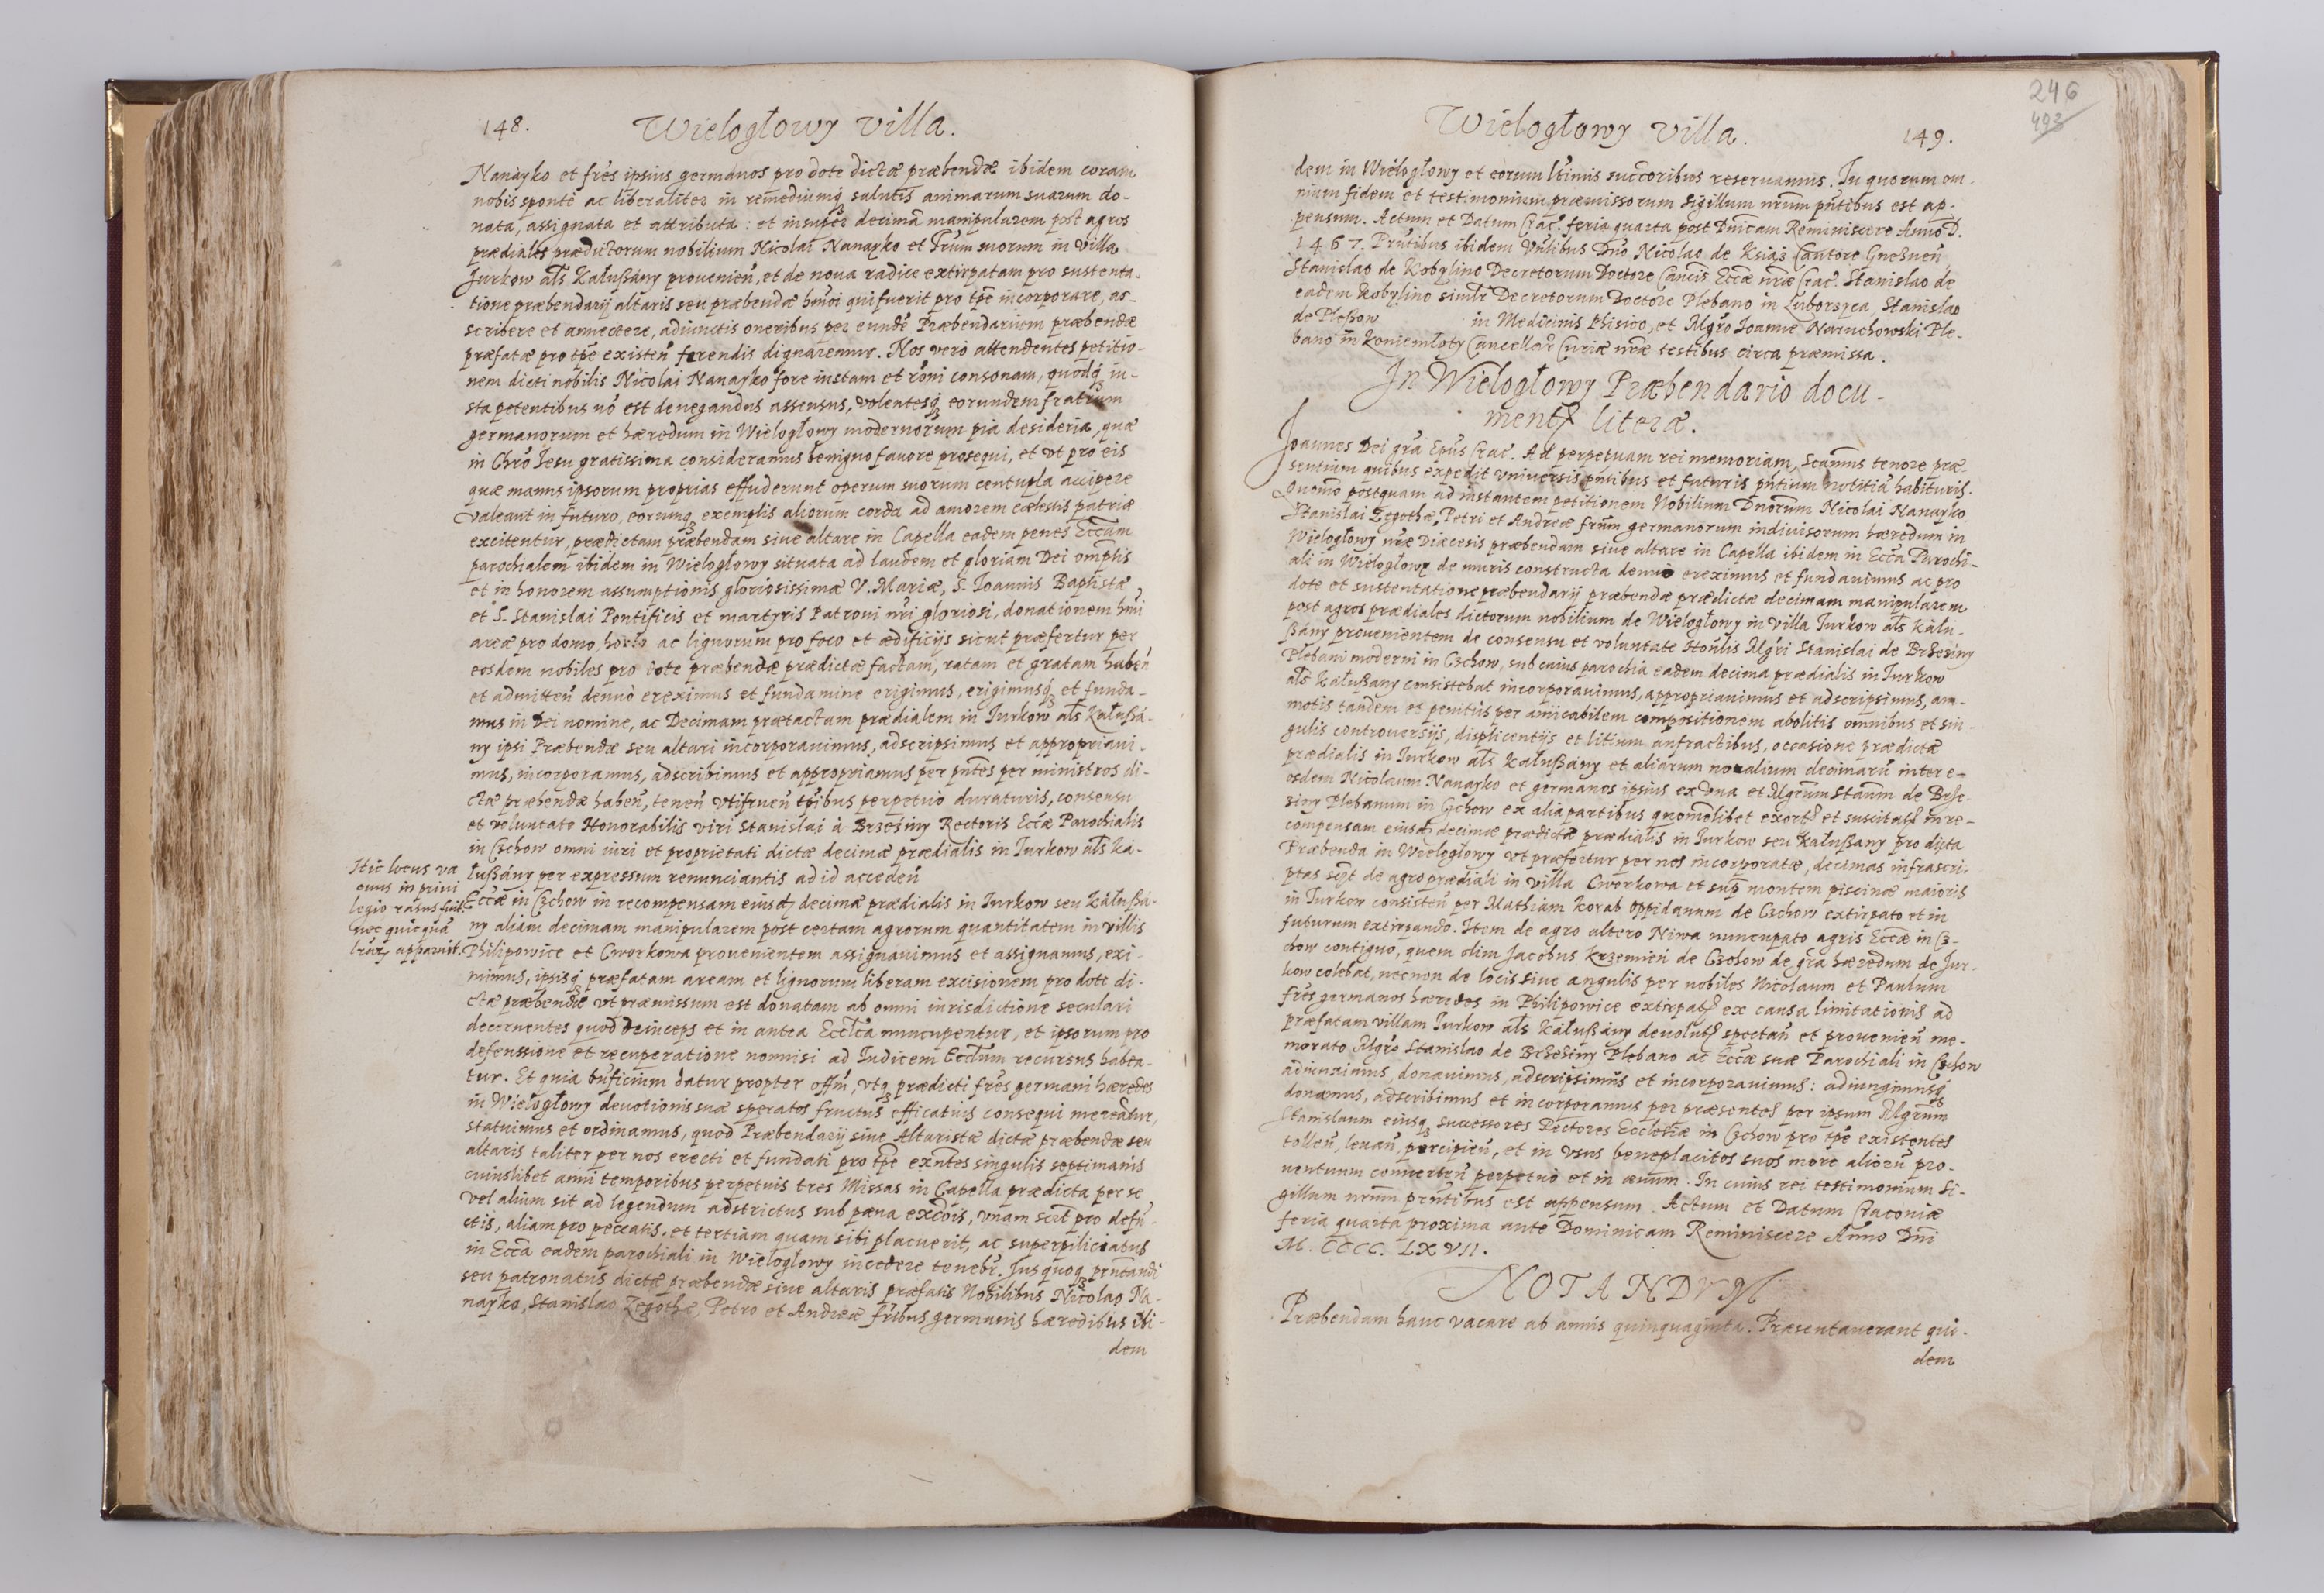 148. Wielogłowy villa.
Nanayko et frēs ipsius germanos pro dote dictæ præbendæ ibidem coram
nobis sponte ac liberaliter in remediumq; salutis animarum suarum do-
nata, assignata et attributa: et insuper decimā manipularem post agros
prædiales prædictorum nobilium Nicolai Nanayko et frūm suorum in villa
Jurkow als Kałußány provenien̄, et de nova radice extirpatam pro sustenta-
tione præbendarij altaris seu præbendæ hmōi qui fuerit pro tpē incorporare, as-
scribere et annectere, adiunctis oneribus per eundē Præbendarium præbendæ
præfatæ pro tpē existen̄ ferendis dignaremur. Nos verò attendentes petitio-
nem dicti nobilis Nicolai Nanayko fore iustam et rōni consonam, quodq; iu-
sta petentibus nō est denegandus assensus, volentesq; eorundem fratrum
germanorum et hæredum in Wielogłowy modernorum pia desideria, quæ
in Chrō Jesu gratissima consideramus benigno favore prosequi, et vt pro eis
quæ manus ipsorum proprias effuderunt operum suorum centupla accipere
valeant in futuro, eorumq; exemplis aliorum corda ad amorem cælestis patriæ
excitentur, prædictam præbendam siue altare in Capella eadem penes Eccām
parochialem ibidem in Wielogłowy situata ad laudem et gloriam Dei omptis
et in honorem assumptionis gloriosissimæ V. Mariæ, S. Joannis Baptistæ
et S. Stanislai Pontificis et martyris Patroni nri gloriosi, donationem hmōi
areæ pro domo, horto ac lignorum pro foco et ædificijs sicut præfertur per
eosdem nobiles pro dote præbendæ prædictæ factam, ratam et gratam haben̄
et admitten̄ denuò ereximus et fundamine erigimus, erigimusq; et funda-
mus in Dei nomine, ac Decimam prætactam prædialem in Jurkow als Kałußá-
ny ipsi Præbendæ seu altari incorporauimus, adscripsimus et appropriaui-
mus, incorporamus, adscribimus et appropriamus per pntēs per ministros di-
ctæ præbendæ haben̄, tenen̄ vtifruen̄ tpībus perpetuò duraturis, consensu
et voluntate Honorabilis viri Stanislai à Brzeziny Rectoris Eccæ Parochialis
in Czchow omni iuri et proprietati dictæ decimæ prædialis in Jurkow als Ka-
łußány per expressum renunciantis ad id acceden̄
Hic locus va
cuus in privi
legio rasus fuit
nec quicquā
lrarū apparuit.
Eccæ in Czchow in recompensam eiusdē decimæ prædialis in Jurkow seu Kałußá-
ny aliam decimam manipularem post certam agrorum quantitatem in villis
Philipowice et Cworkowa prouenientem assignauimus et assignamus, exi-
mimus, ipsisq; præfatam aream et lignorum liberam excisionem pro dote di-
ctæ præbendæ vt præmissum est donatam ab omni iurisdictione seculari
decernentes quod deinceps et in antea Ecclīca nuncupentur, et ipsorum pro
defenssione et recuperatione nonnisi ad Judicem Ecclīum recursus habea-
tur. Et quia bnficium datur propter offm̄, vtq; prædicti frēs germani hæredes
in Wielogłowy deuotionis suæ speratos fructus efficatius consequi mereātur,
statuimus et ordinamus, quod Præbendarij siue Altaristæ dictæ præbendæ seu
altaris taliter per nos erecti et fundati pro tpē exn̄tes singulis septimanis
cuiuslibet anni temporibus perpetuis tres Missas in Capella prædicta per se
vel alium sit ad legendum adstrictus sub pæna excōis, vnam scīt pro defū-
ctis, aliam pro peccatis, et tertiam quam sibi placuerit, ac superpiliciatus
in Eccā eadem parochiali in Wielogłowy incedere tenebr̄. Jus quoq; prntandi
seu patronatus dictæ præbendæ siue altaris præfatis Nobilibus Nicolao Na-
nayko, Stanislao Zegothæ, Petro et Andreæ frībus germanis hæredibus ibi-
dem
Wielogłowy villa. 149.
246
493
dem in Wielogłowy et eorum ltīmis succoribus reseruamus. In quorum om-
nium fidem et testimonium præmissorum sigillum nrūm pntibus est ap-
pensum. Actum et Datum Crac. feria quarta post Dnīcam Reminiscere Anno D.
1467. Prntibus ibidem Vnlibus Dno Nicolao de Książ Cantore Gnesnen̄
Stanislao de Kobylino Decretorum Doctore Canēis Eccæ nræ Crac. Stanislao de
eadem Kobylino simlr Decretorum Doctore Plebano in Luborzyca, Stanislao
de Pleßow in Medicinis Phisico, et Mgrō Joanne Naruchowski Ple-
bano in Koniemłoty Cancellar̄ Curiæ nræ testibus circa præmissa.
In Wielogłowy Præbendario docu-
mentꝝ literæ.
Joannes Dei grā Epūs Crac. Ad perpetuam rei memoriam, Scamus tenore præ-
sentium quibus expedit vniuersis pntibus et futuris pntium notitiā habituris.
Quomo postquam ad instantem petitionem Nobilium Dnorum Nicolai Nanayko,
Stanislai Zegothæ, Petri et Andreæ frūm germanorum indiuisorum hæredum in
Wielogłowy nræ Diæcesis præbendam siue altare in Capella ibidem in Eccā Parochi-
ali in Wielogłowy de muris constructa denuo ereximus et fundauimus ac pro
dote et sustentatione præbendarij præbendæ prædictæ decimam manipularem
post agros prædiales dictorum nobilium de Wielogłowy in villa Jurkow als Kału-
ßány prouenientem de consensu et voluntate Honlis Mgri Stanislai de Brzeziny
Plebani moderni in Czchow, sub cuius parochia eadem decima prædialis in Jurkow
als Kałußany consistebat incorporauimus, appropriauimus et adscripsimus, am-
motis tandem et penitus per amicabilem compositionem abolitis omnibus et sin-
gulis controversijs, displicentijs et litium anfractibus, occasione prædictæ
prædialis in Jurkow als Kałußány et aliarum noualium decimarū inter e-
osdem Nicolaum Nanayko et germanos ipsius ex vna et Mgrūm Stanm de Brze-
ziny Plebanum in Czchow ex alia partibus quomolibet exortꝭ et suscitatꝭ in re-
compensam eiusdē decimæ prædictæ prædialis in Jurkow seu Kałußany pro dicta
Præbenda in Wielogłowy vt præfertur per nos incorporatæ, decimas infrascri-
ptas scīt de agro prædiali in villa Cworkowa et sup montem piscinæ maioris
in Jurkow consisten̄ per Mathiam Korab oppidanum de Czchow extirpato et in
futurum extirpando. Item de agro altero Niwa nuncupato agris Eccæ in Cz-
chow contiguo, quem olim Jacobus Krzemien de Czchow de grā hæredum de Jur-
kow colebat, necnon de locis siue angulis per nobiles Nicolaum et Paulum
frēs germanos hæredes in Philipowice extirpatꝭ ex causa limitationis ad
præfatam villam Jurkow als Kałußány deuolutꝭ spectan̄ et prouenien̄ me-
morato Mgrō Stanislao de Brzeziny Plebano ac Eccæ suæ Parochiali in Czchow
adiunximus, donauimus, adscripsimus et incorporauimus: adiungimusq;
donamus, adscribimus et incorporamus per præsentes per ipsum Mgrūm
Stanislaum eiusq; successores Rectores Ecclesiæ in Czchow pro tpē existentes
tollen̄, leuan̄, percipien̄, et in vsus beneplacitos suos more aliorū pro-
uentuum conuerten̄ perpetuò et in æuum. In cuius rei testimonium si-
gillum nrūm prntibus est appensum. Actum et Datum Cracoviæ
feria quarta proxima ante Dominicam Reminiscere Anno Dni
M. CCCC. LXVII.
NOTANDVM
Præbendam hanc vacare ab annis quinquaginta. Præsentauerant qui-
dem